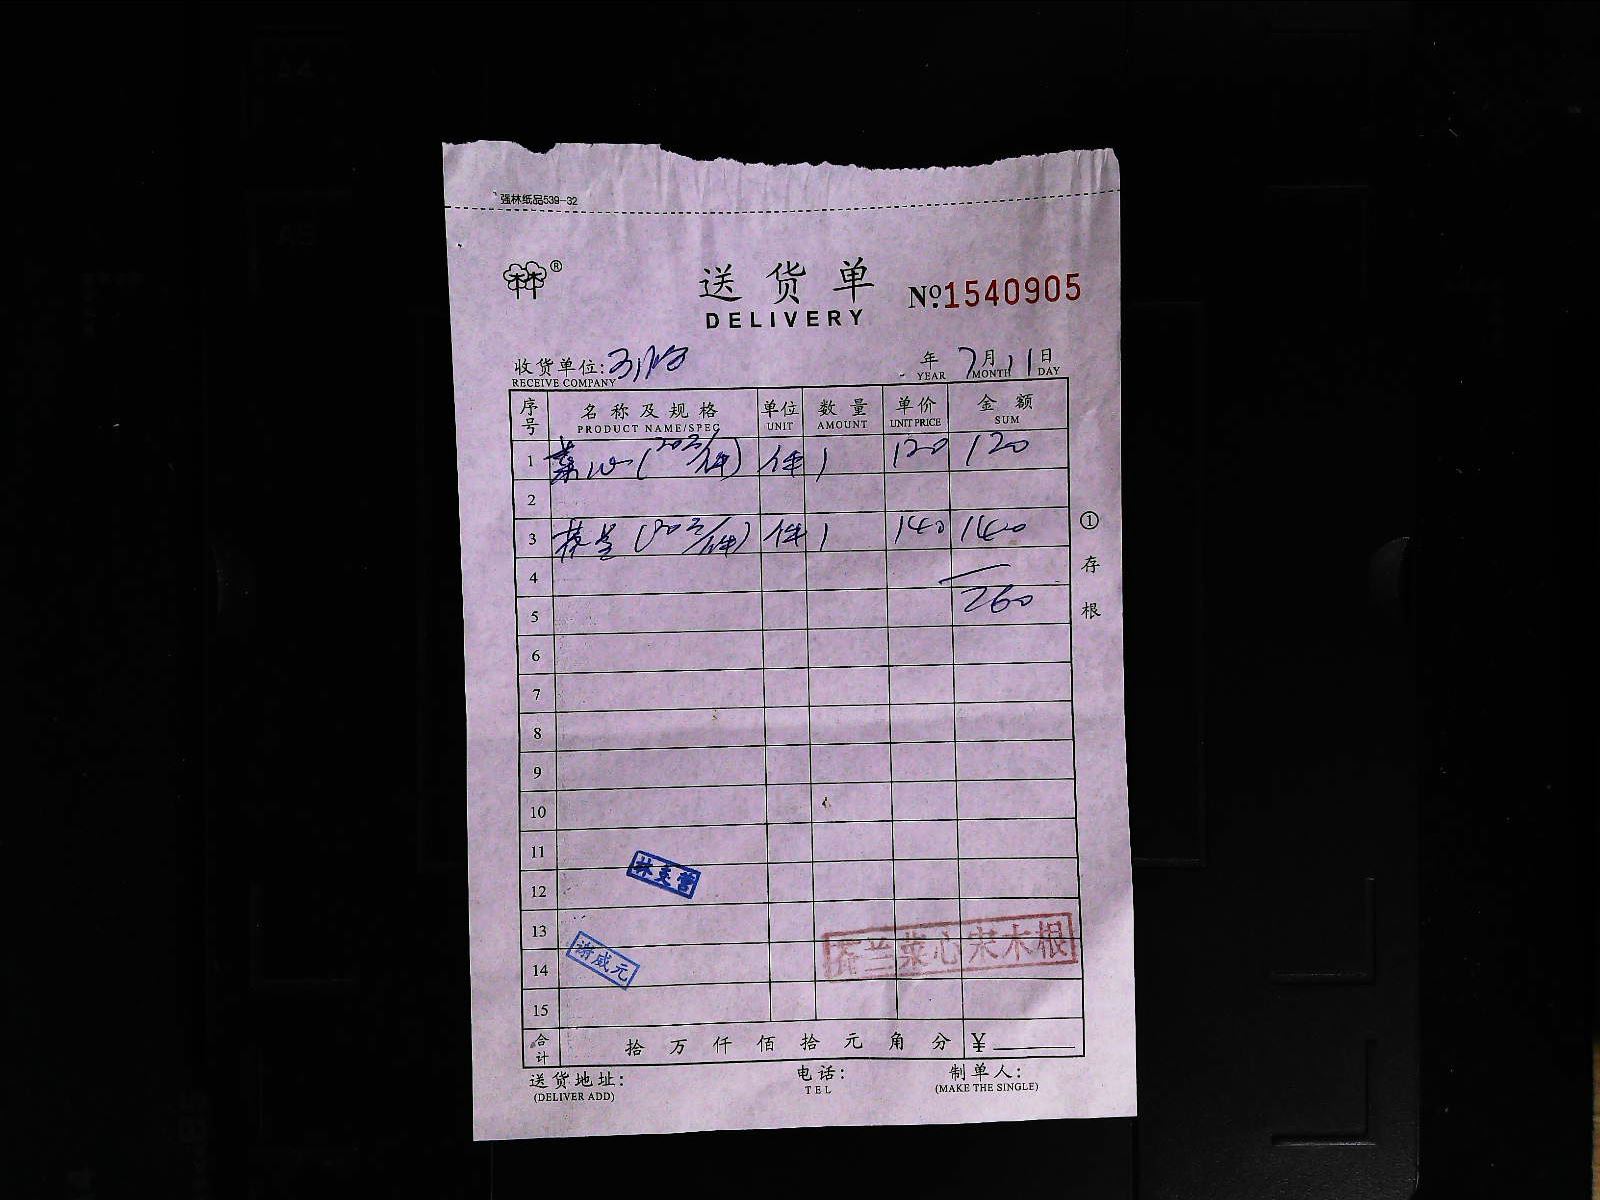 强林纸品539-32
®
送货单
DELIVERY
Nº 1540905
收货单位:
RECEIVE COMPANY
年 7月11日
YEAR MONTH DAY
序号 名称及规格 单位 数量 单价 金额
PRODUCT NAME/SPEC UNIT AMOUNT UNIT PRICE SUM
1 菜心(20斤/件) 件 1 120 120
2
3 (20斤/件) 件 1 140 140
4
5 260
6
7
8
9
10
11
12
13
14
15
①存根
林美营
谢威元
芥兰菜心宋木根
合计 拾 万 仟 佰 拾 元 角 分 ¥
送货地址: 电话: 制单人:
(DELIVER ADD) TEL (MAKE THE SINGLE)